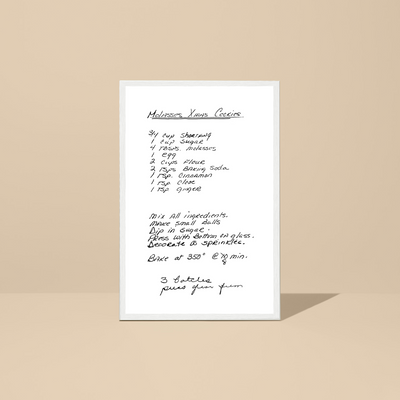 Molasses Xmas Cookies
3/4 cup shortening
1 cup sugar
4 TBSPS. molasses
1 egg
2 cups flour
2 TSPS Baking Soda
1 TSP. Cinnamon
1 TSP Clove
1 TSP Ginger
Mix All ingredients.
Make small balls
Dip in sugar.
Press with bottom of glass.
Decorate sprinkles.
Bake at 350° @ min.
3 batches